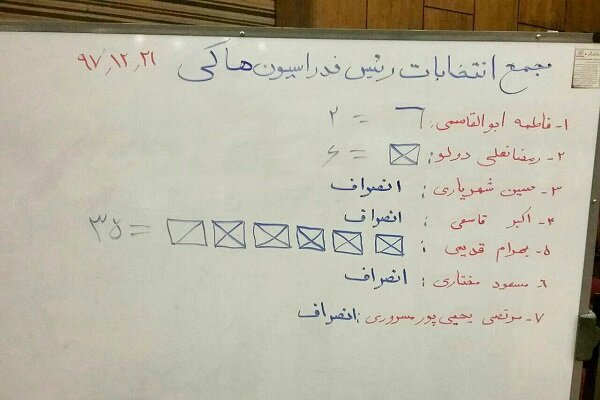 مجمع انتخابات رئیس فدراسیون هاکی ۹۷,۱۲,۲۱
۱- فاطمه ابوالقاسمی: = ۲
۲- رمضانعلی دولو: = ۶
۳- حسین شهریاری: انصراف
۴- اکبر قاسمی: انصراف
۵- بهرام قدیمی: = ۳۵
۶- مسعود مختاری: انصراف
۷- مرتضی یحیی پور مسروری: انصراف